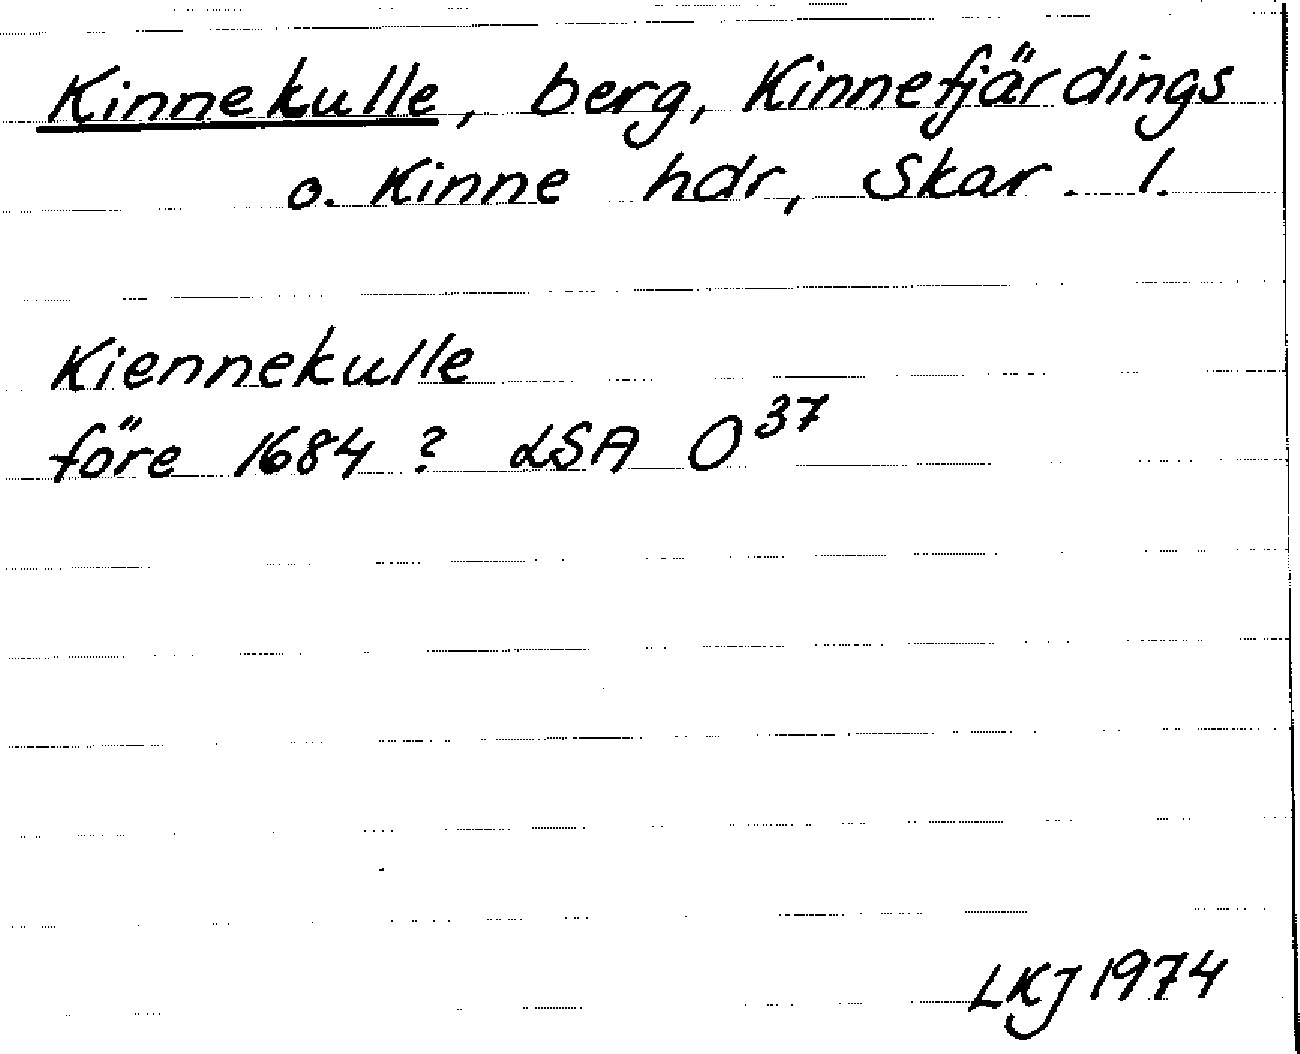 Kinnekulle, berg, Kinnefjärdings
o. Kinne hdr, Skar. l.
Kiennekulle
före 1684? LSA O³⁷
LKJ 1974